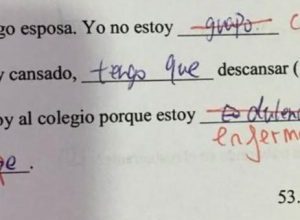 go esposa. Yo no estoy guapo.
y cansado, tengo que descansar (
oy al colegio porque estoy
enferm
53.